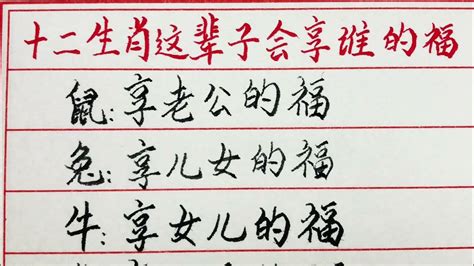 十二生肖这辈子会享谁的福
鼠:享老公的福
兔:享儿女的福
牛:享女儿的福